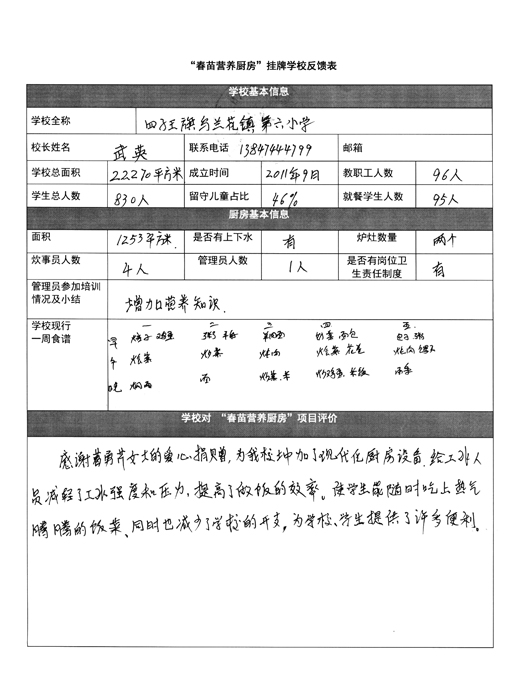 “春苗营养厨房”挂牌学校反馈表
学校基本信息
学校全称 四子王旗乌兰花镇第六小学
校长姓名 武英 联系电话 13847444799 邮箱
学校总面积 22270平方米 成立时间 2011年9月 教职工人数 96人
学生总人数 830人 留守儿童占比 46% 就餐学生人数 95人
厨房基本信息
面积 1253平方米 是否有上下水 有 炉灶数量 两个
炊事员人数 4人 管理员人数 1人 是否有岗位卫生责任制度 有
管理员参加培训情况及小结 增加营养知识.
学校现行一周食谱
一 二 三 四 五
早 鸡蛋 粥 面包 包子 粥
午 烩菜 炒菜 花卷
晚 面 炒菜.米 炒鸡蛋.米饭
学校对 “春苗营养厨房”项目评价
感谢葛勇芹女士的爱心捐赠,为我校增加了现代化厨房设备.给工作人
员减轻了工作强度和压力,提高了做饭的效率。使学生能随时吃上热气
腾腾的饭菜.同时也减少了学校的开支,为学校、学生提供了许多便利。